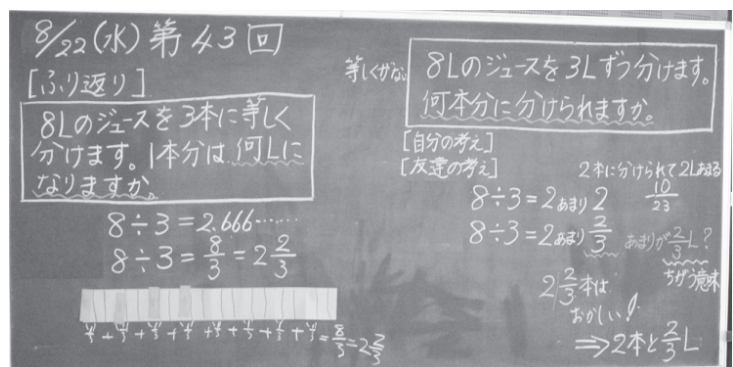 8/22(水)第43回
[ふり返り]
8Lのジュースを3本に等しく
分けます。1本分は、何Lに
なりますか。
8÷3=2.666……
8÷3=8/3=2 2/3
1/3+1/3+1/3+1/3+1/3+1/3+1/3+1/3=8/3=2 2/3
等しくがない
8Lのジュースを3Lずつ分けます。
何本分に分けられますか。
[自分の考え]
[友達の考え]
2本に分けられて2Lあまる
8÷3=2あまり2
10/23
8÷3=2あまり2/3
あまりが2/3L?
ちがう意味
2 2/3本は
おかしい!
⇒2本と2/3L